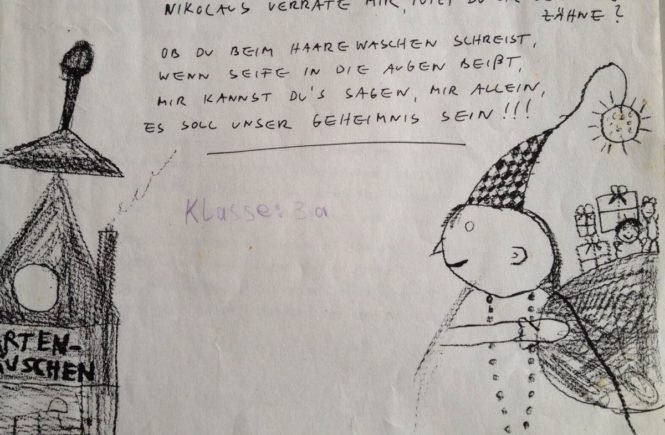 NIKOLAUS VERRATE MIR, DU
ZÄHNE?
OB DU BEIM HAAREWASCHEN SCHREIST,
WENN SEIFE IN DIE AUGEN BEIßT,
MIR KANNST DU'S SAGEN, MIR ALLEIN,
ES SOLL UNSER GEHEIMNIS SEIN!!!
Klasse: 3a
ARTEN-
USCHEN